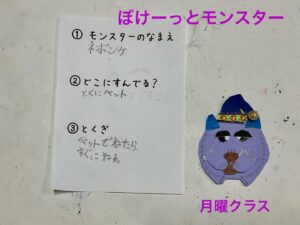 ぼけーっとモンスター
① モンスターのなまえ
ネボンケ
② どこにすんでる？
とくにベット
③ とくぎ
ベットでねたら
すぐにねる
月曜クラス